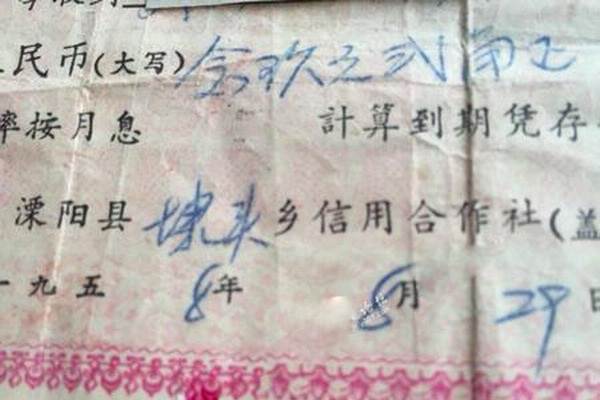 人民币(大写)叁玖元贰角正
率按月息 計算到期凭存
溧阳县埭头乡信用合作社(盖
一九五8年 8月 29日